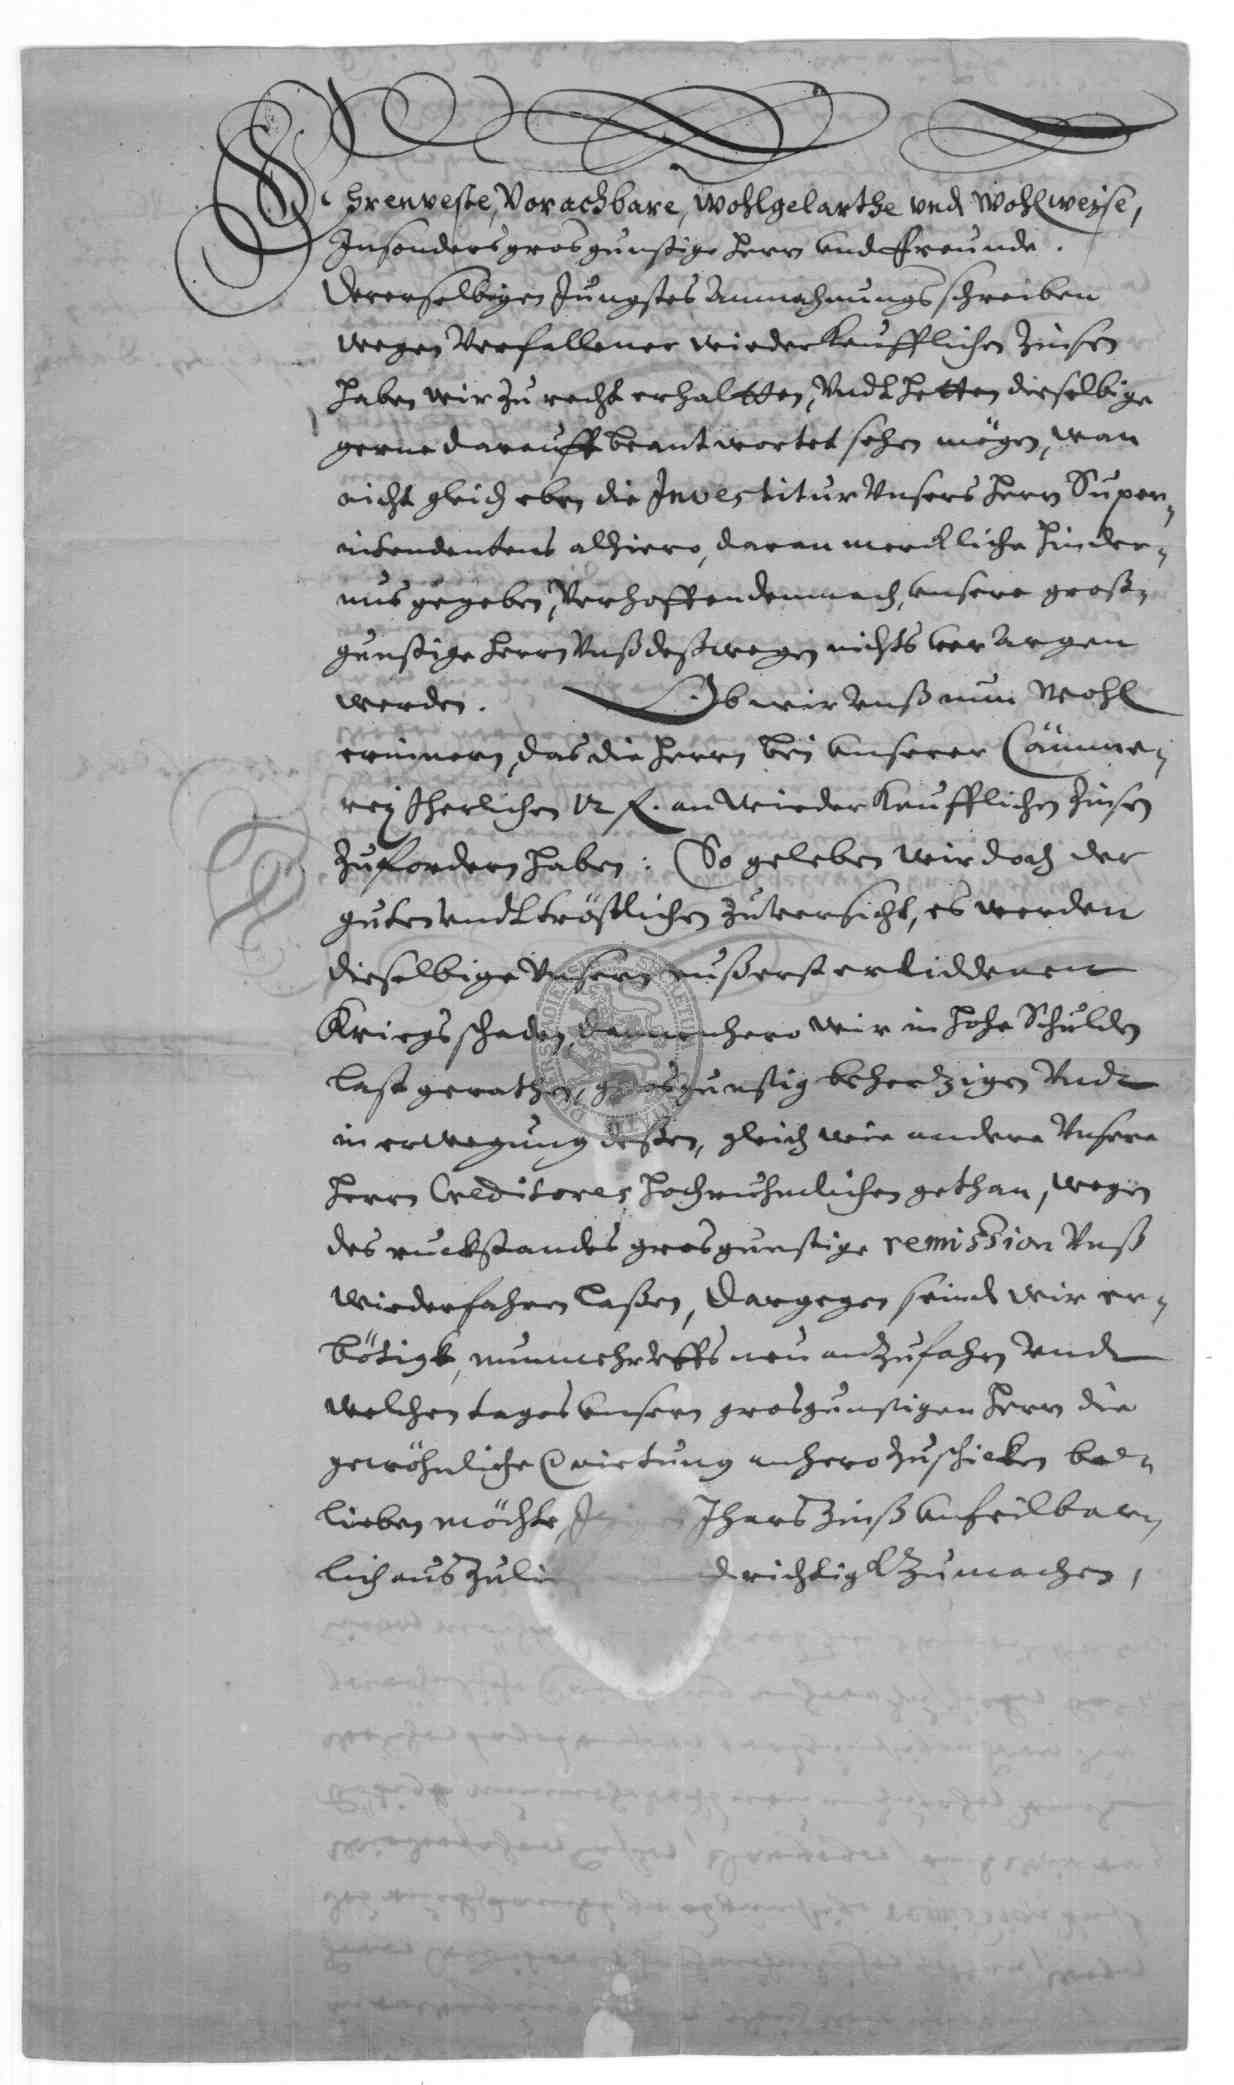 Ehrenveste, Vorachbare, Wohlgelarthe vnd Wohlweyse,
Insonders grosgunstige Herrn vnd Freunde.
Dererselbigen Jungstes Anmahnungsschreiben
wegen Verfallener wiederkeufflichen Zinsen
haben wir zu recht erhaltten, Vndt hetten dieselbige
gerne darauff beantwortet sehen mögen, wan
nicht gleich eben die Investitur Vnsers Herrn Super-
intendentens alhiero, daran merckliche hinder-
nus gegeben, Verhoffen demnach, vnsere groß-
gunstige Herrn Vnß deßwegen nichts verargen
werden. Ob wir Vnß nun Wohl
erinnern, das die Herrn bei vnserer Cämme-
rey Jherlichen 12 f. an Wiederkeufflichen Zinsen
zufordern haben: So geleben wir doch der
guten vndt tröstlichen Zuversicht, es werden
dieselbige Vnsern eußerst erliddenen
Kriegsschaden, dannenhero wir in hohe Schulden
last gerathen, grosgunstig behertzigen Vnd
in erwegung deßen, gleich wie andere Vnsere
Herrn Creditores hochruhmlichen gethan, wegen
des ruckstandes grosgunstige remission Vnß
wiederfahren laßen, Dargegen seind wir er-
bötigk, nunmehr uffs neu anzufahen Vnd
welchen tages vnsern grosgunstigen Herrn die
gewöhnliche Qvietung anhero zuschicken be-
lieben möchte, Jhars Zinß vnfeilbar-
lich aus zu richtigk zumachen,